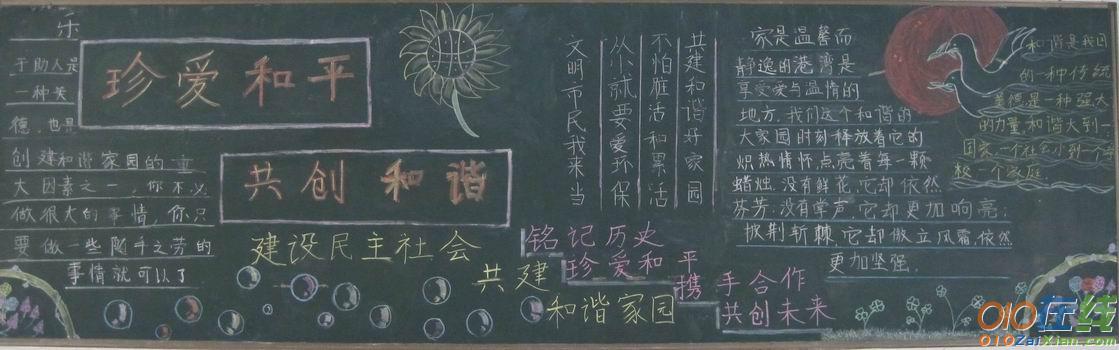 乐
于助人是
一种美
德，也是
创建和谐家园的重
大因素之一，你不必
做很大的事情，你只
要做一些随手之劳的
事情就可以了
珍爱和平
共创和谐
建设民主社会
共建
和谐家园
铭记历史
珍爱和平
携手合作
共创未来
共建和谐好家园
不怕脏活和累活
从小就要爱环保
文明市民我来当
家是温馨而
静逸的港湾是
享受爱与温情的
地方，我们这个和谐的
大家园时刻释放着它的
炽热情怀点亮着每一颗
蜡烛，没有鲜花，它却依然
芬芳；没有掌声，它却更加响亮；
披荆斩棘，它却傲立风霜，依然
更加坚强。
和谐是我国
的一种传统
美德，是一种强大
的力量，和谐大到一
国家，一个社会小到一个
校一个家庭
010在线
010ZaiXian.com